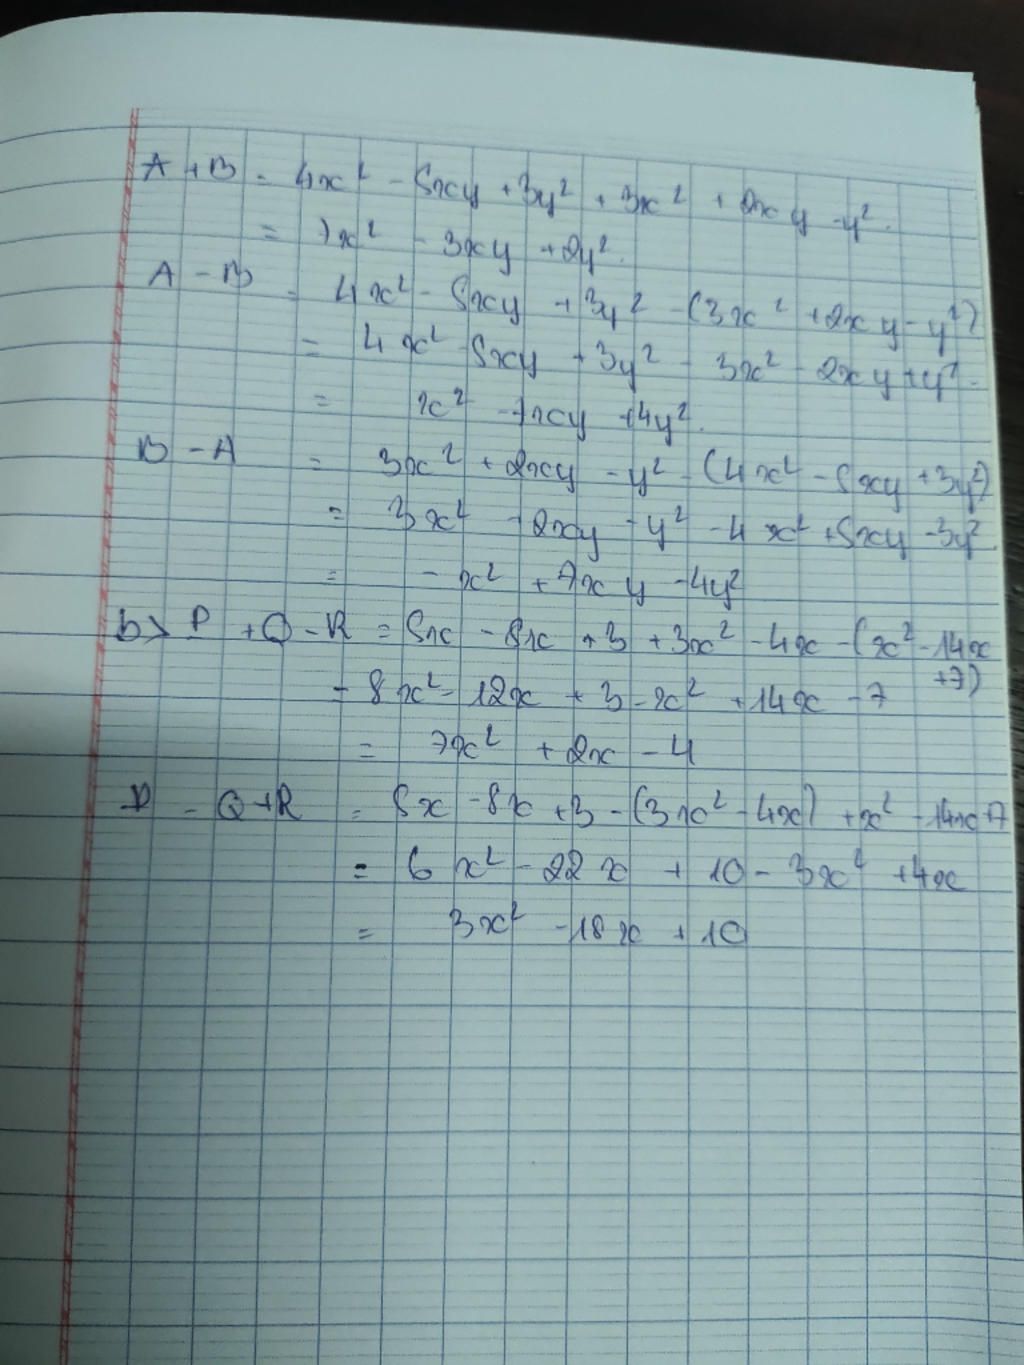 A + B = 4x² - 5xy + 3y² + 3x² + 2xy - y².
= 7x² - 3xy + 2y².
A - B = 4x² - 5xy + 3y² - (3x² + 2xy - y²)
= 4x² - 5xy + 3y² - 3x² - 2xy + y².
= x² - 7xy + 4y².
B - A = 3x² + 2xy - y² - (4x² - 5xy + 3y²)
= 3x² + 2xy - y² - 4x² + 5xy - 3y²
= - x² + 7xy - 4y²
b> P + Q - R = 5x - 8x + 3 + 3x² - 4x - (x² - 14x
+7)
= 8x² - 12x + 3 - x² + 14x - 7
= 7x² + 2x - 4
P - Q + R = 5x - 8x + 3 - (3x² - 4x) + x² - 14x + 7
= 6x² - 22x + 10 - 3x² + 4x
= 3x² - 18x + 10